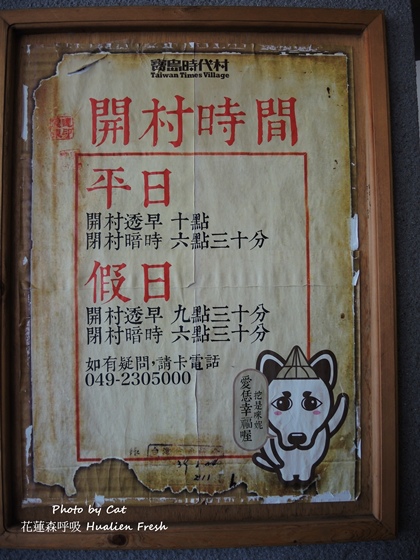 寶島時代村
Taiwan Times Village
開村時間
平日
開村透早 十點
閉村暗時 六點三十分
假日
開村透早 九點三十分
閉村暗時 六點三十分
如有疑問,請卡電話
049-2305000
挖是咪妮
愛恁幸福喔
Photo by Cat
花蓮森呼吸 Hualien Fresh